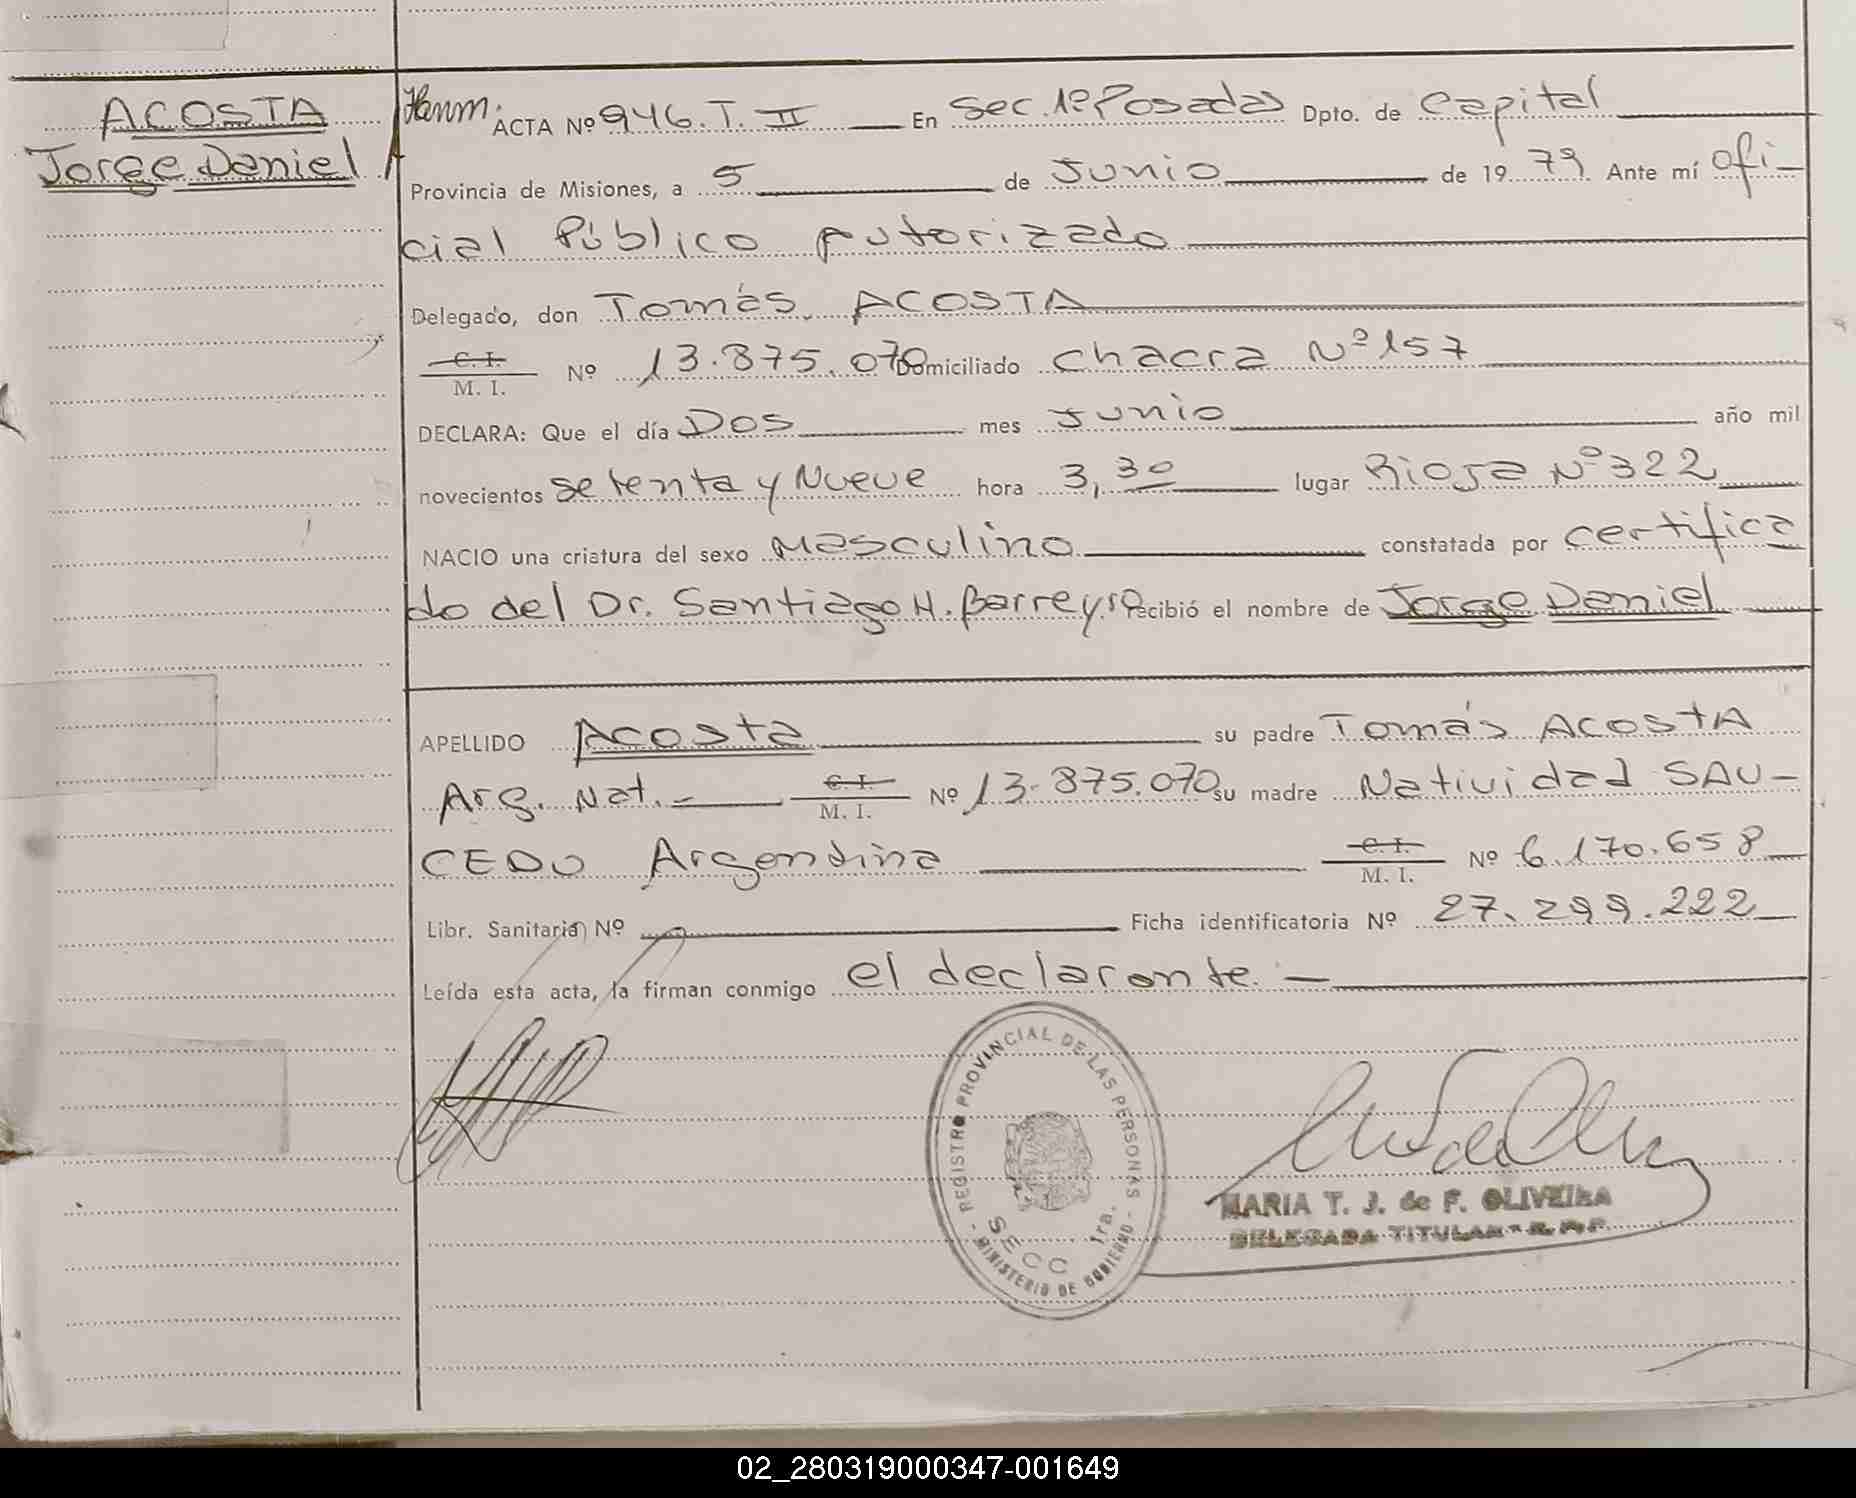 ACOSTA
Jorge Daniel
ACTA Nº 946. T. II En Sec. 1º Posadas Dpto. de Capital
Provincia de Misiones, a 5 de Junio de 19 79 Ante mí ofi-
cial Público Autorizado
Delegado, don Tomás ACOSTA
C. I.
M. I. Nº 13.875.070 Domiciliado chacra Nº 157
DECLARA: Que el día Dos mes Junio año mil
novecientos setenta y Nueve hora 3,30 lugar Rioja Nº 322
NACIO una criatura del sexo Masculino constatada por certifica
do del Dr. Santiago H. Barreyro recibió el nombre de Jorge Daniel
APELLIDO Acosta su padre Tomás ACOSTA
Arg. Nat. - C. I.
M. I. Nº 13.875.070 su madre Natividad SAU-
CEDO Argentina C. I.
M. I. Nº 6.170.658
Libr. Sanitaria Nº Ficha identificatoria Nº 27.299.222
Leída esta acta, la firman conmigo el declarante. -
- REGISTRO PROVINCIAL DE LAS PERSONAS -
SECC 1ra.
MINISTERIO DE GOBIERNO
MARIA T. J. de F. OLIVEIRA
DELEGADA TITULAR
02_280319000347-001649